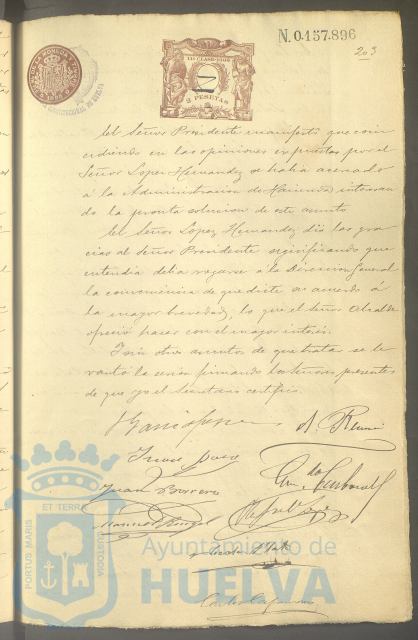 N.0.157.896
203
11ª CLASE
2 PESETAS
El Señor Presidente manifestó que coin
cidiendo en las opiniones expuestas por el
Señor Lopez Hernandez se habia acercado
á la Administracion de Hacienda interesan
do la pronta solucion de este asunto
El Señor Lopez Hernandez dió las gra
cias al Señor Presidente significando que
entendia debia rogarse á la Direccion General
la conveniencia de que dicte su acuerdo á
la mayor brevedad, lo que el Señor Alcalde
ofreció hacer con el mayor interés.
Y sin otros asuntos de que tratar se le
vantó la sesion firmando los Señores presentes
de que yo el Secretario certifico.
Juan Borrero
Manuel
PORTUS MARIS
ET TERRÆ
CUSTODIA
Ayuntamiento de
HUELVA